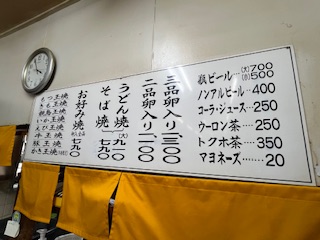 瓶ビール…(大)700
(小)500
ノンアルビール…400
コーラ・ジュース…250
ウーロン茶…250
トクホ茶…350
マヨネーズ……20
三品卵入り一三〇〇
二品卵入り一一〇〇
うどん焼(大)九一〇
そば焼 七九〇
お好み焼 七九〇
もつ玉焼
いか玉焼
えび玉焼
牛玉焼
豚玉焼